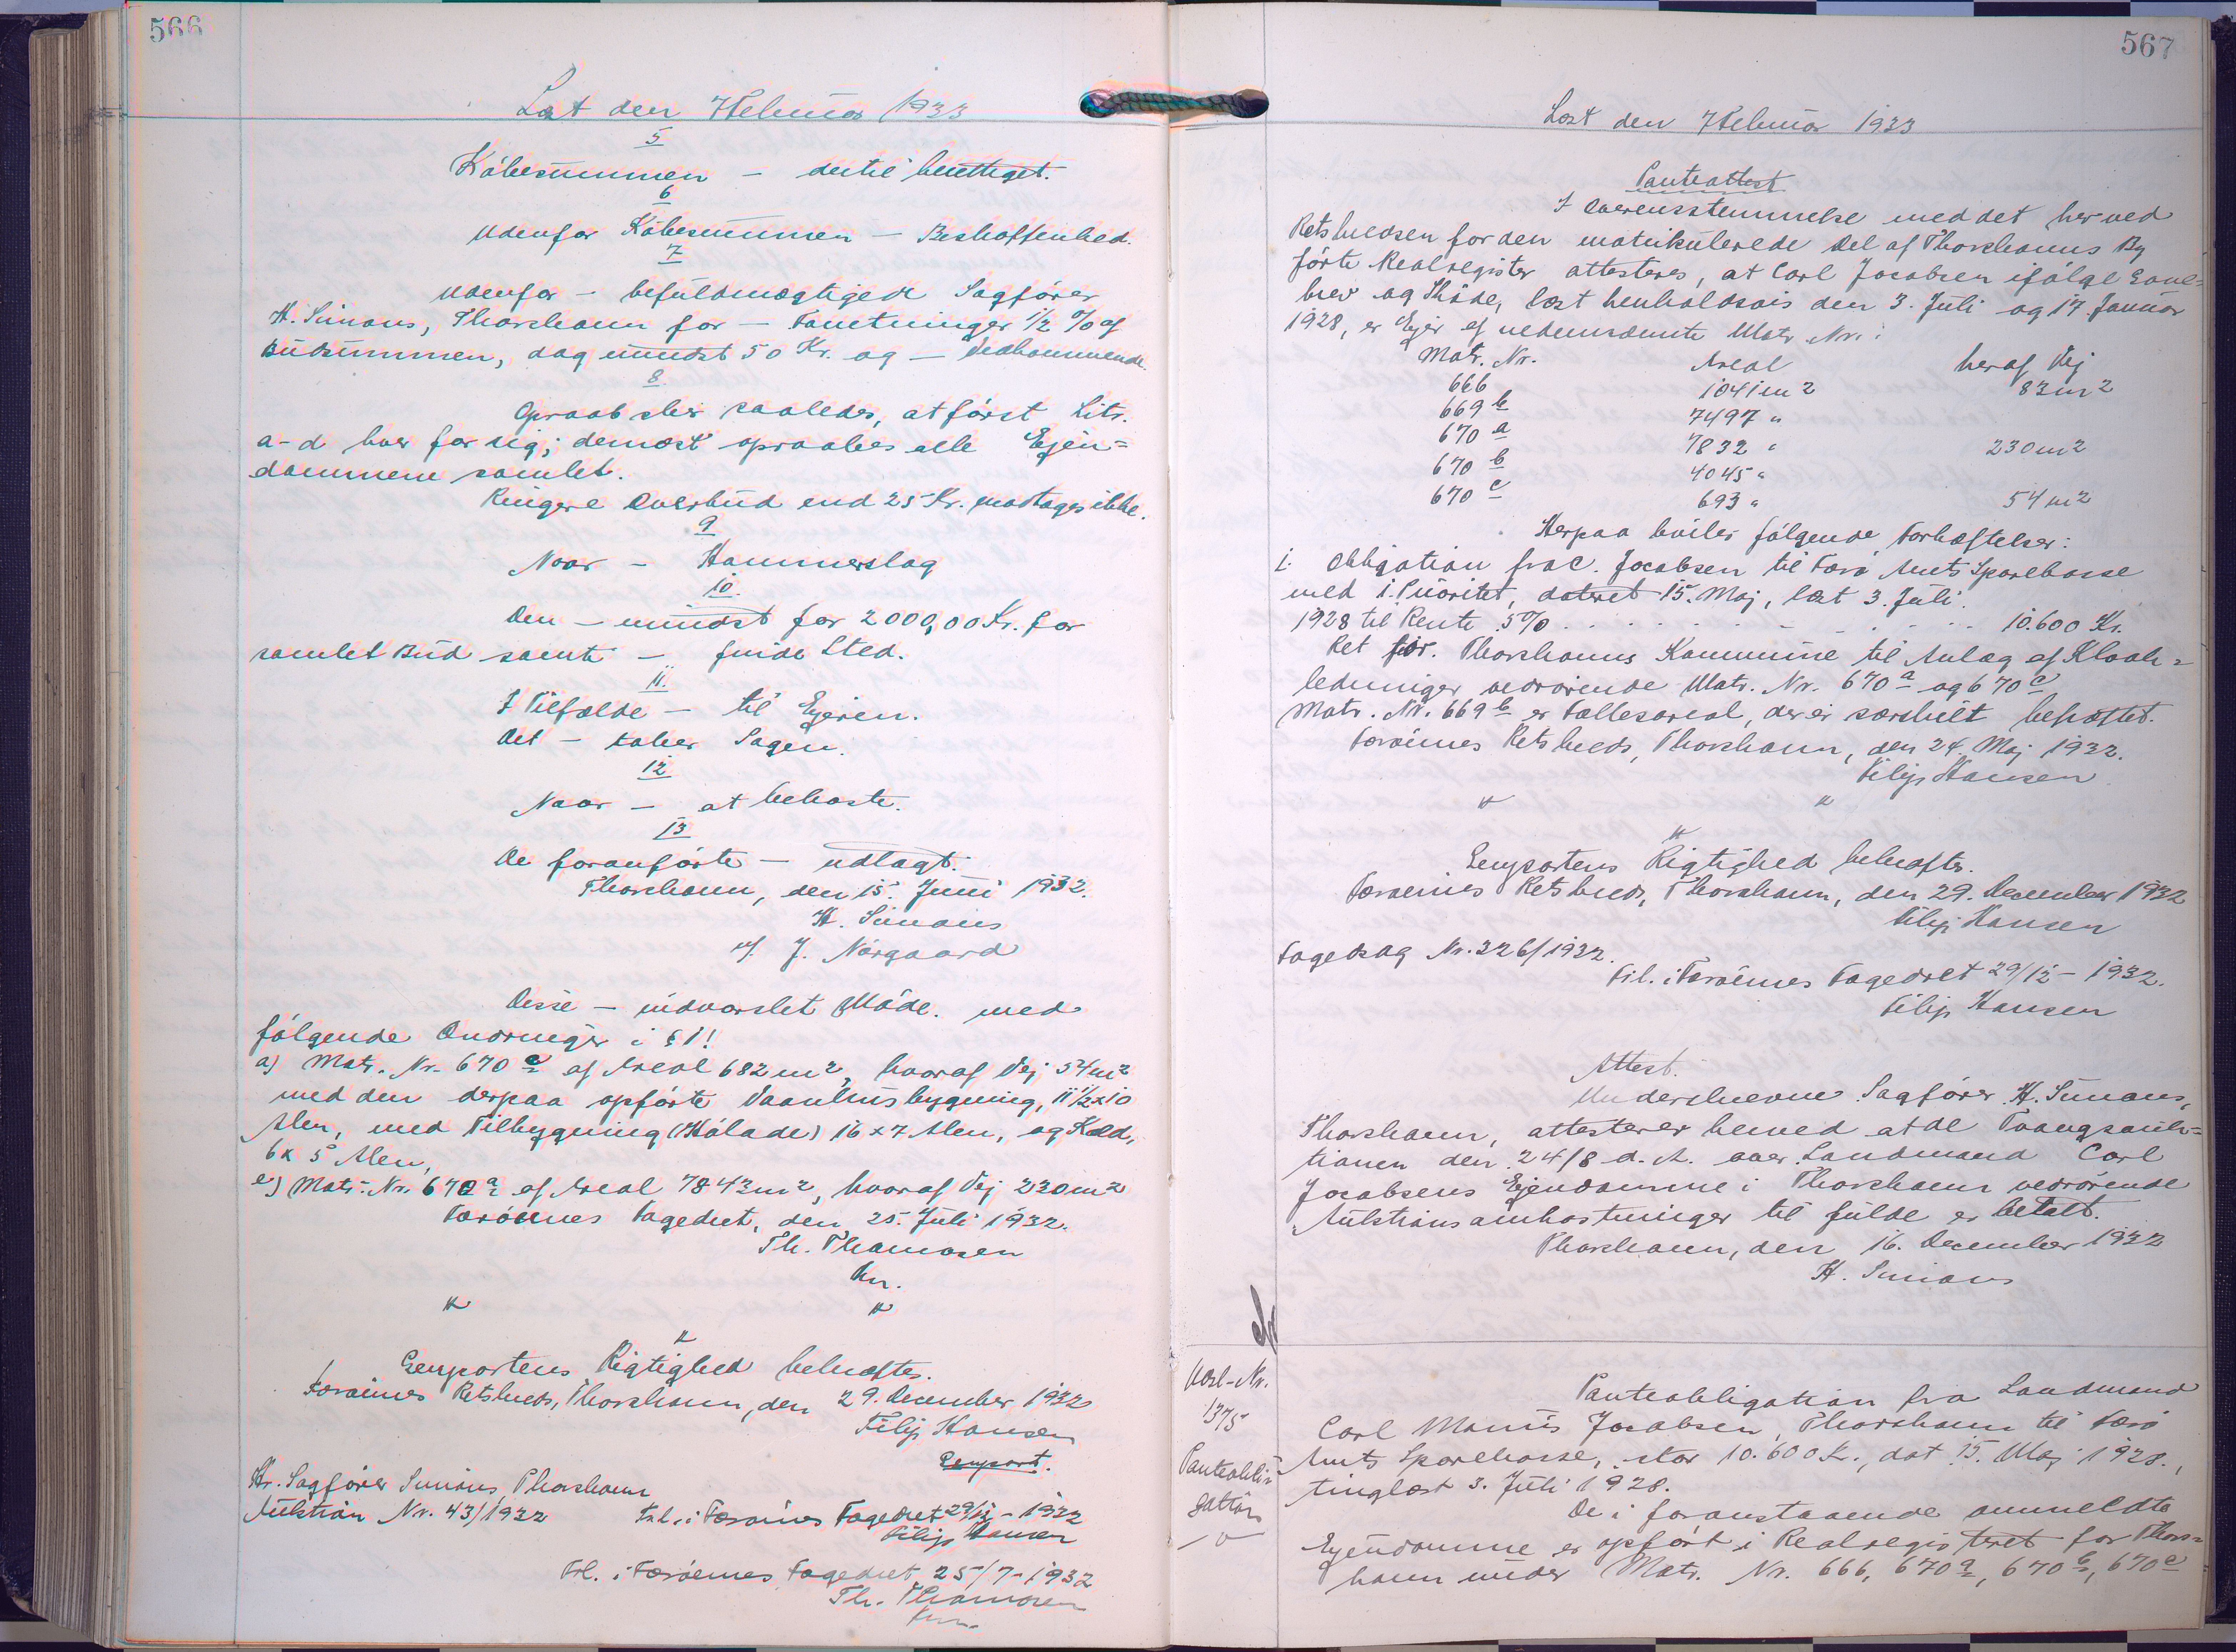 566
Læst den 7 Februar 1933
5
Købesummen – dertil berettiget.
6
Udenfor Købesummen – Beskaffenhed.
7
Udenfor – befuldmægtigede Sagfører
H. Simons, Thorshavn for – Forretninger 1/2 % af
Budsummen, dog mindst 50 Kr. og – Vedkommende.
8.
Opraab sker saaledes, at først Litr.
a-d hver for sig; dernæst opraabes alle Ejen=
dommene samlet.
Ringere Overbud end 25 Kr. modtages ikke.
9
Naar – Hammerslag
10.
Den – mindst for 2000,00 Kr. for
samlet Bud samt – finde Sted.
11.
I Tilfælde – til Ejeren.
Det – taber Sagen.
12
Naar – at bekoste.
13
De foranførte – udlagt.
Thorshavn, den 15. Juni 1932.
H. Simons
e/. J. Nørgaard
Disse – indvarslet Møde. med
følgende Ændringer i § 1!
a) Matr. Nr. 670 c af Areal 682 m2, hvoraf Vej 54 m2
med den derpaa opførte Vaanhusbygning, 11 1/2 x 10
Alen, med Tilbygning (Hølade) 16 x 7 Alen, og Kæld,
6 x 5 Alen,
e) Matr. Nr. 670 a af Areal 7843 m2, hvoraf Vej 230 m2
Færøernes Fogedret, den 25. Juli 1932.
Th. Thomasen
kn.
" "
"
Genpartens Rigtighed bekræftes.
Færøernes Retskreds, Thorshavn, den 29. December 1932
Filip Hansen
Genpart.
Hr. Sagfører Simons Thorshavn
Auktion Nr. 43/1932 Frl. i Færøernes Fogedret 29/12 – 1932
Filip Hansen
Frl. i Færøernes Fogedret 25/7-1932
Th. Thomasen
kn.
567
Læst den 7 Februar 1933
Panteattest
I Overensstemmelse med det her ved
Retskredsen for den matrikulerede Del af Thorshavns By
førte Realregister attesteres, at Carl Jacobsen ifølge Gave=
brev og Skøde, læst henholdsvis den 3. Juli og 17. Januar
1928, er Ejer af nedennævnte Matr. Nr.:
Matr. Nr. Areal heraf Vej
666 1041 m2 83 m2
669 b 7497 "
670 a 7832 " 230 m2
670 b 4045 "
670 c 693 " 54 m2
Herpaa hviler følgende Forhæftelser:
1. Obligation fra C. Jacobsen til Færø Amts Sparekasse
med 1. Prioritet, dateret 15. Maj, læst 3. Juli
1928 til Rente 5% . . . . . . . . . 10.600 Kr.
Ret for Thorshavns Kommune til Anlæg af Kloak=
ledninger vedrørende Matr. Nr. 670 a og 670 c
Matr. Nr. 669 b er Fællesareal, der er særskilt behæftet.
Færøernes Retskreds, Thorshavn, den 24. Maj 1932.
Filip Hansen
" "
"
Genpartens Rigtighed bekræftes.
Færøernes Retskreds, Thorshavn, den 29. December 1932
Filip Hansen
Fogedsag Nr. 326/1932.
Frl. i Færøernes Fogedret 29/12 – 1932.
Filip Hansen
Attest.
Underskrevne Sagfører H. Simons,
Thorshavn, attesterer herved at de Tvangsauk=
tionen den 24/8 d. A. over Landmand Carl
Jacobsens Ejendomme i Thorshavn vedrørende
Auktionsomkostninger til fulde er betalt.
Thorshavn, den 16. December 1932
H. Simons
Løbe-Nr.
1375
Panteobli=
gation
Panteobligation fra Landmand
Carl Manus Jacobsen, Thorshavn til Færø
Amts Sparekasse, stor 10.600 Kr., dat 15. Maj 1928.,
tinglæst 3. Juli 1928.
De i foranstaaende anmeldte
Ejendomme er opført i Realregisteret for Thors=
havn under Matr. Nr. 666, 670 a, 670 b, 670 c